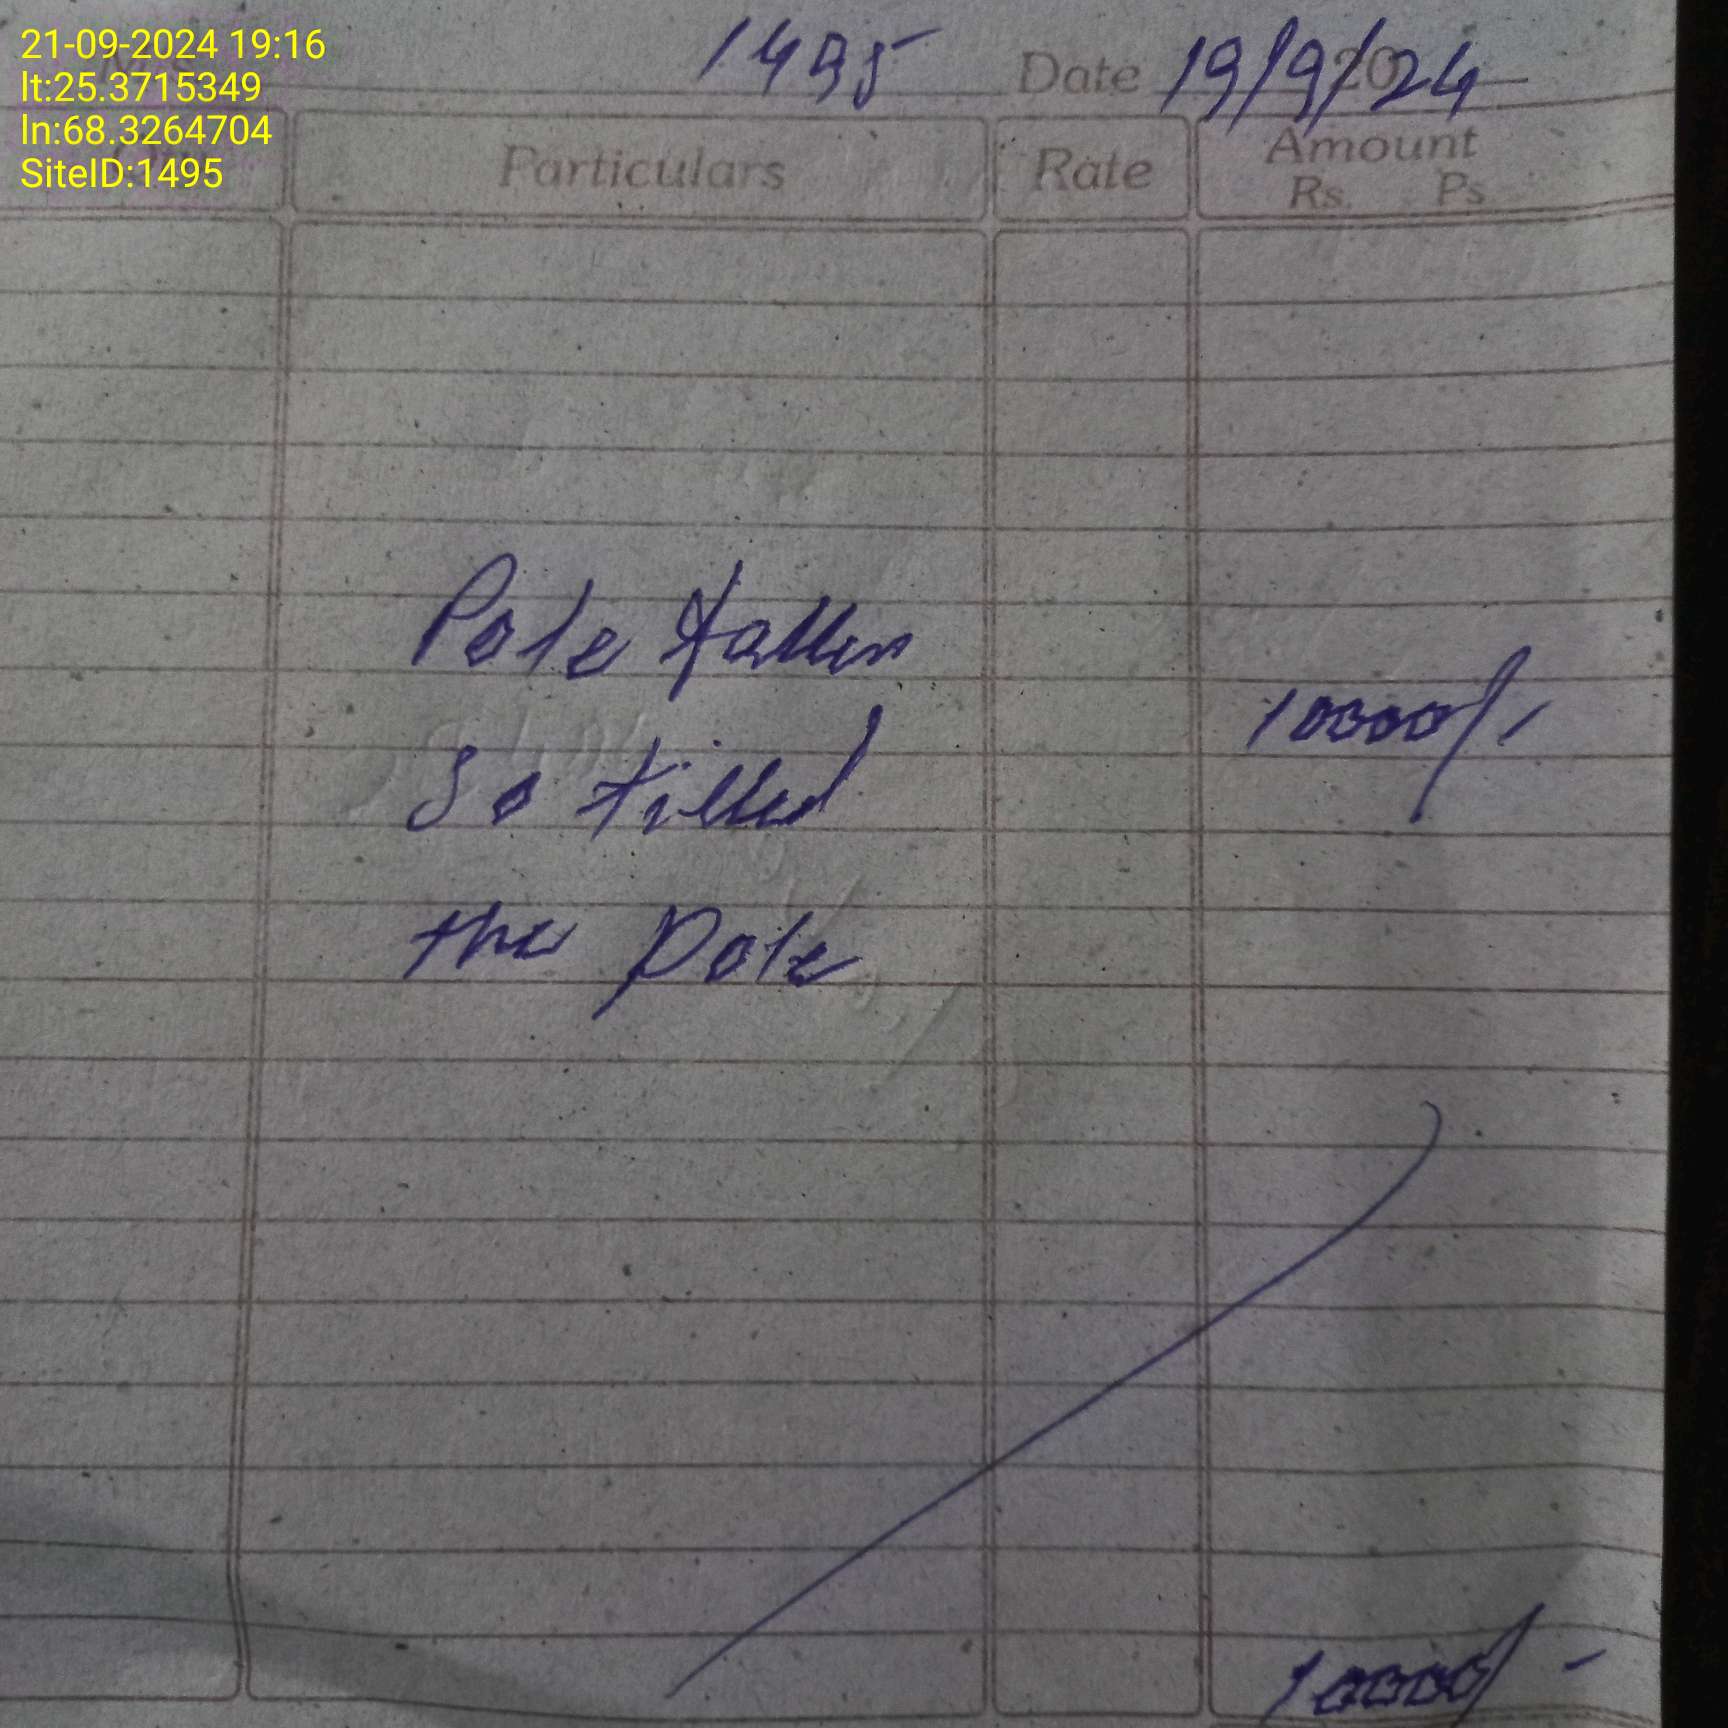 21-09-2024 19:16
lt:25.3715349
ln:68.3264704
SiteID:1495
1495 Date 19/9/2024
Particulars Rate Amount
Rs. Ps
Pole fallen
10000/-
So filled
the Pole
10000/-